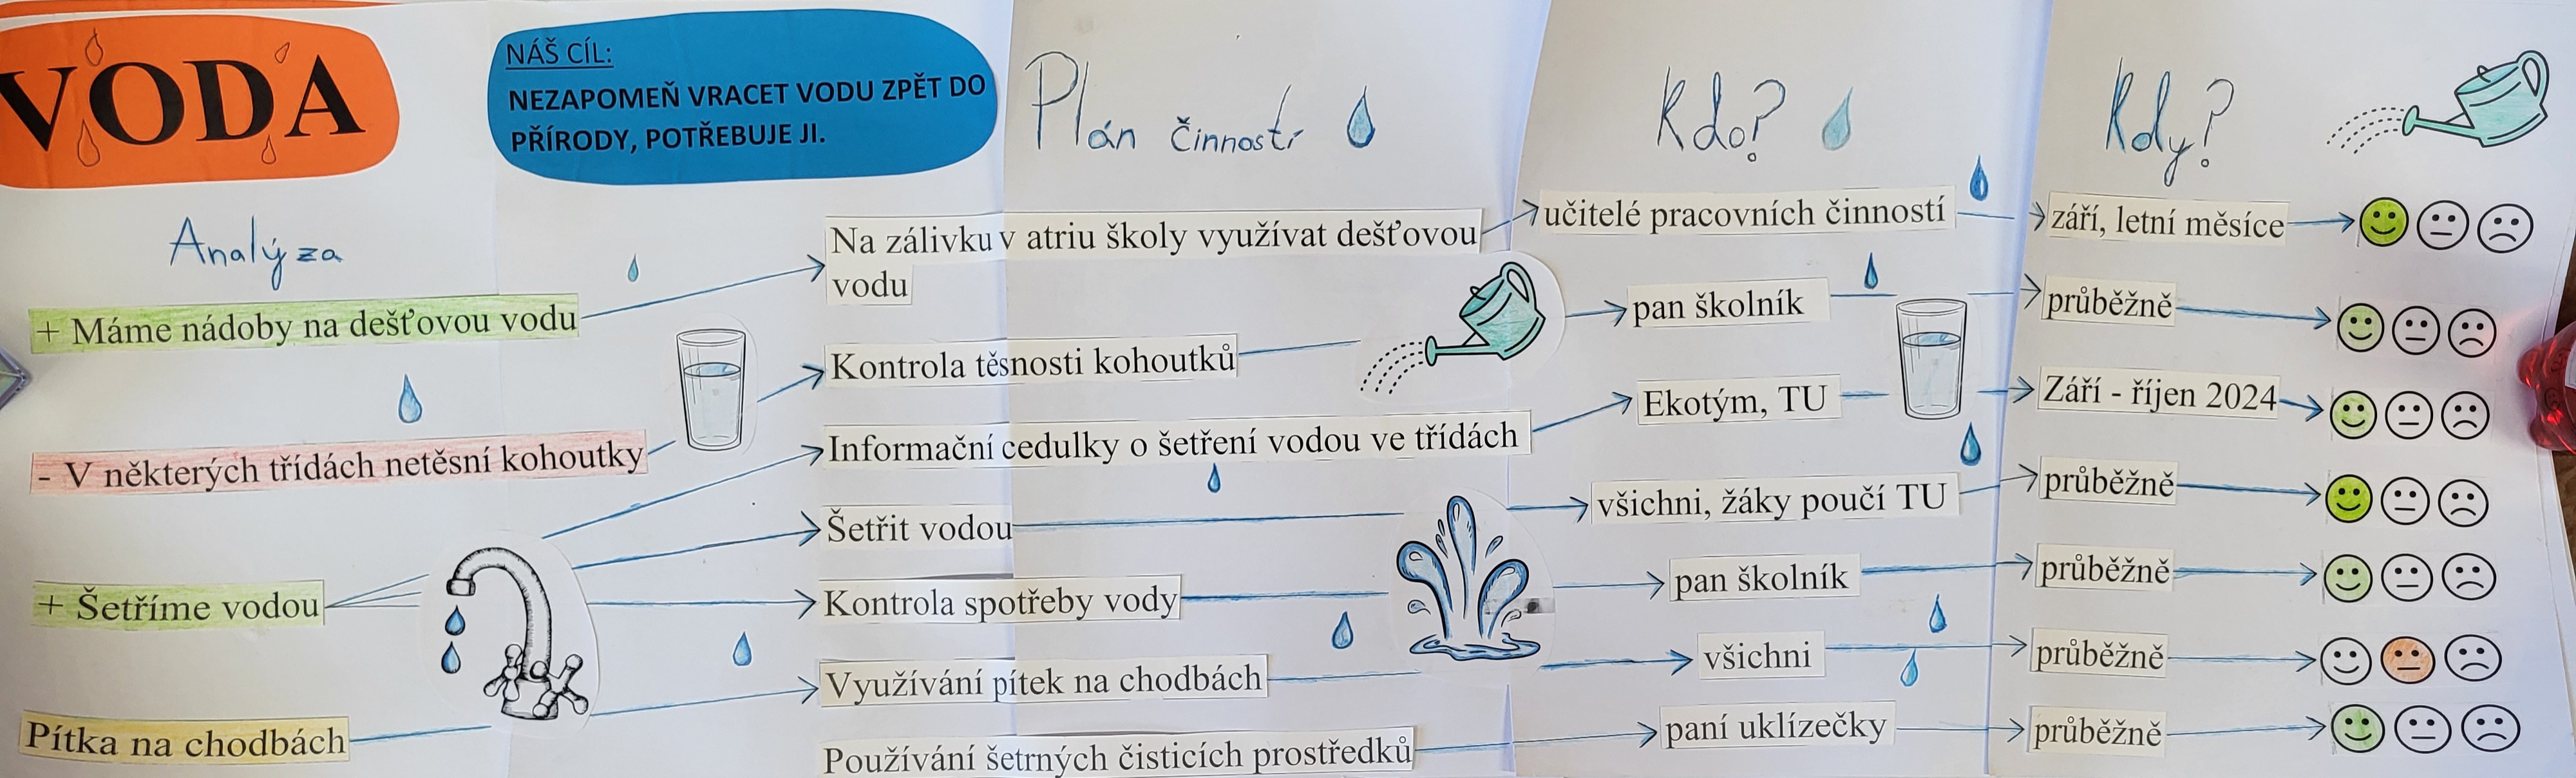 VODA
NÁŠ CÍL:
NEZAPOMEŇ VRACET VODU ZPĚT DO
PŘÍRODY, POTŘEBUJE JI.
Plán činností
Kdo?
Kdy?
Analýza
+ Máme nádoby na dešťovou vodu
- V některých třídách netěsní kohoutky
+ Šetříme vodou
Pítka na chodbách
Na zálivku v atriu školy využívat dešťovou
vodu
učitelé pracovních činností
září, letní měsíce
Kontrola těsnosti kohoutků
pan školník
průběžně
Informační cedulky o šetření vodou ve třídách
Ekotým, TU
Září - říjen 2024
Šetřit vodou
všichni, žáky poučí TU
průběžně
Kontrola spotřeby vody
pan školník
průběžně
Využívání pítek na chodbách
všichni
průběžně
Používání šetrných čisticích prostředků
paní uklízečky
průběžně